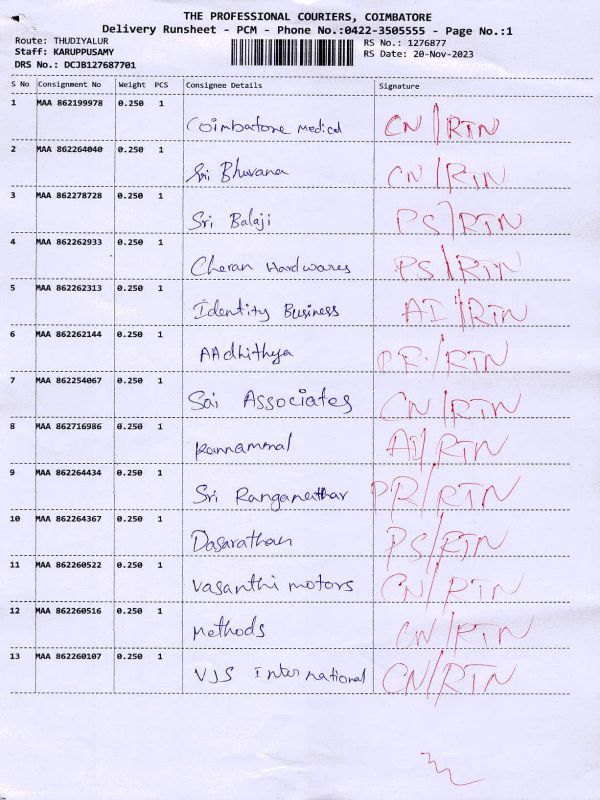 THE PROFESSIONAL COURIERS, COIMBATORE
Delivery Runsheet - PCM - Phone No.:0422-3505555 - Page No.:1
Route: THUDIYALUR RS No.: 1276877
Staff: KARUPPUSAMY RS Date: 20-Nov-2023
DRS No.: DCJB127687701
S No Consignment No Weight PCS Consignee Details Signature
1 MAA 862199978 0.250 1
Coimbatore Medical CN/RTN
2 MAA 862264040 0.250 1
Sri Bhuvana CN/RTN
3 MAA 862278728 0.250 1
Sri Balaji PS/RTN
4 MAA 862262933 0.250 1
Cheran Hardwares PS/RTN
5 MAA 862262313 0.250 1
Identity Business AI/RTN
6 MAA 862262144 0.250 1
AAdhithya PR./RTN
7 MAA 862254067 0.250 1
Sai Associates CN/RTN
8 MAA 862716986 0.250 1
Kannammal AI/RTN
9 MAA 862264434 0.250 1
Sri Ranganathar PR/RTN
10 MAA 862264367 0.250 1
Dasarathan PS/RTN
11 MAA 862260522 0.250 1
Vasanthi motors CN/RTN
12 MAA 862260516 0.250 1
Methods CN/RTN
13 MAA 862260107 0.250 1
VJS International CN/RTN